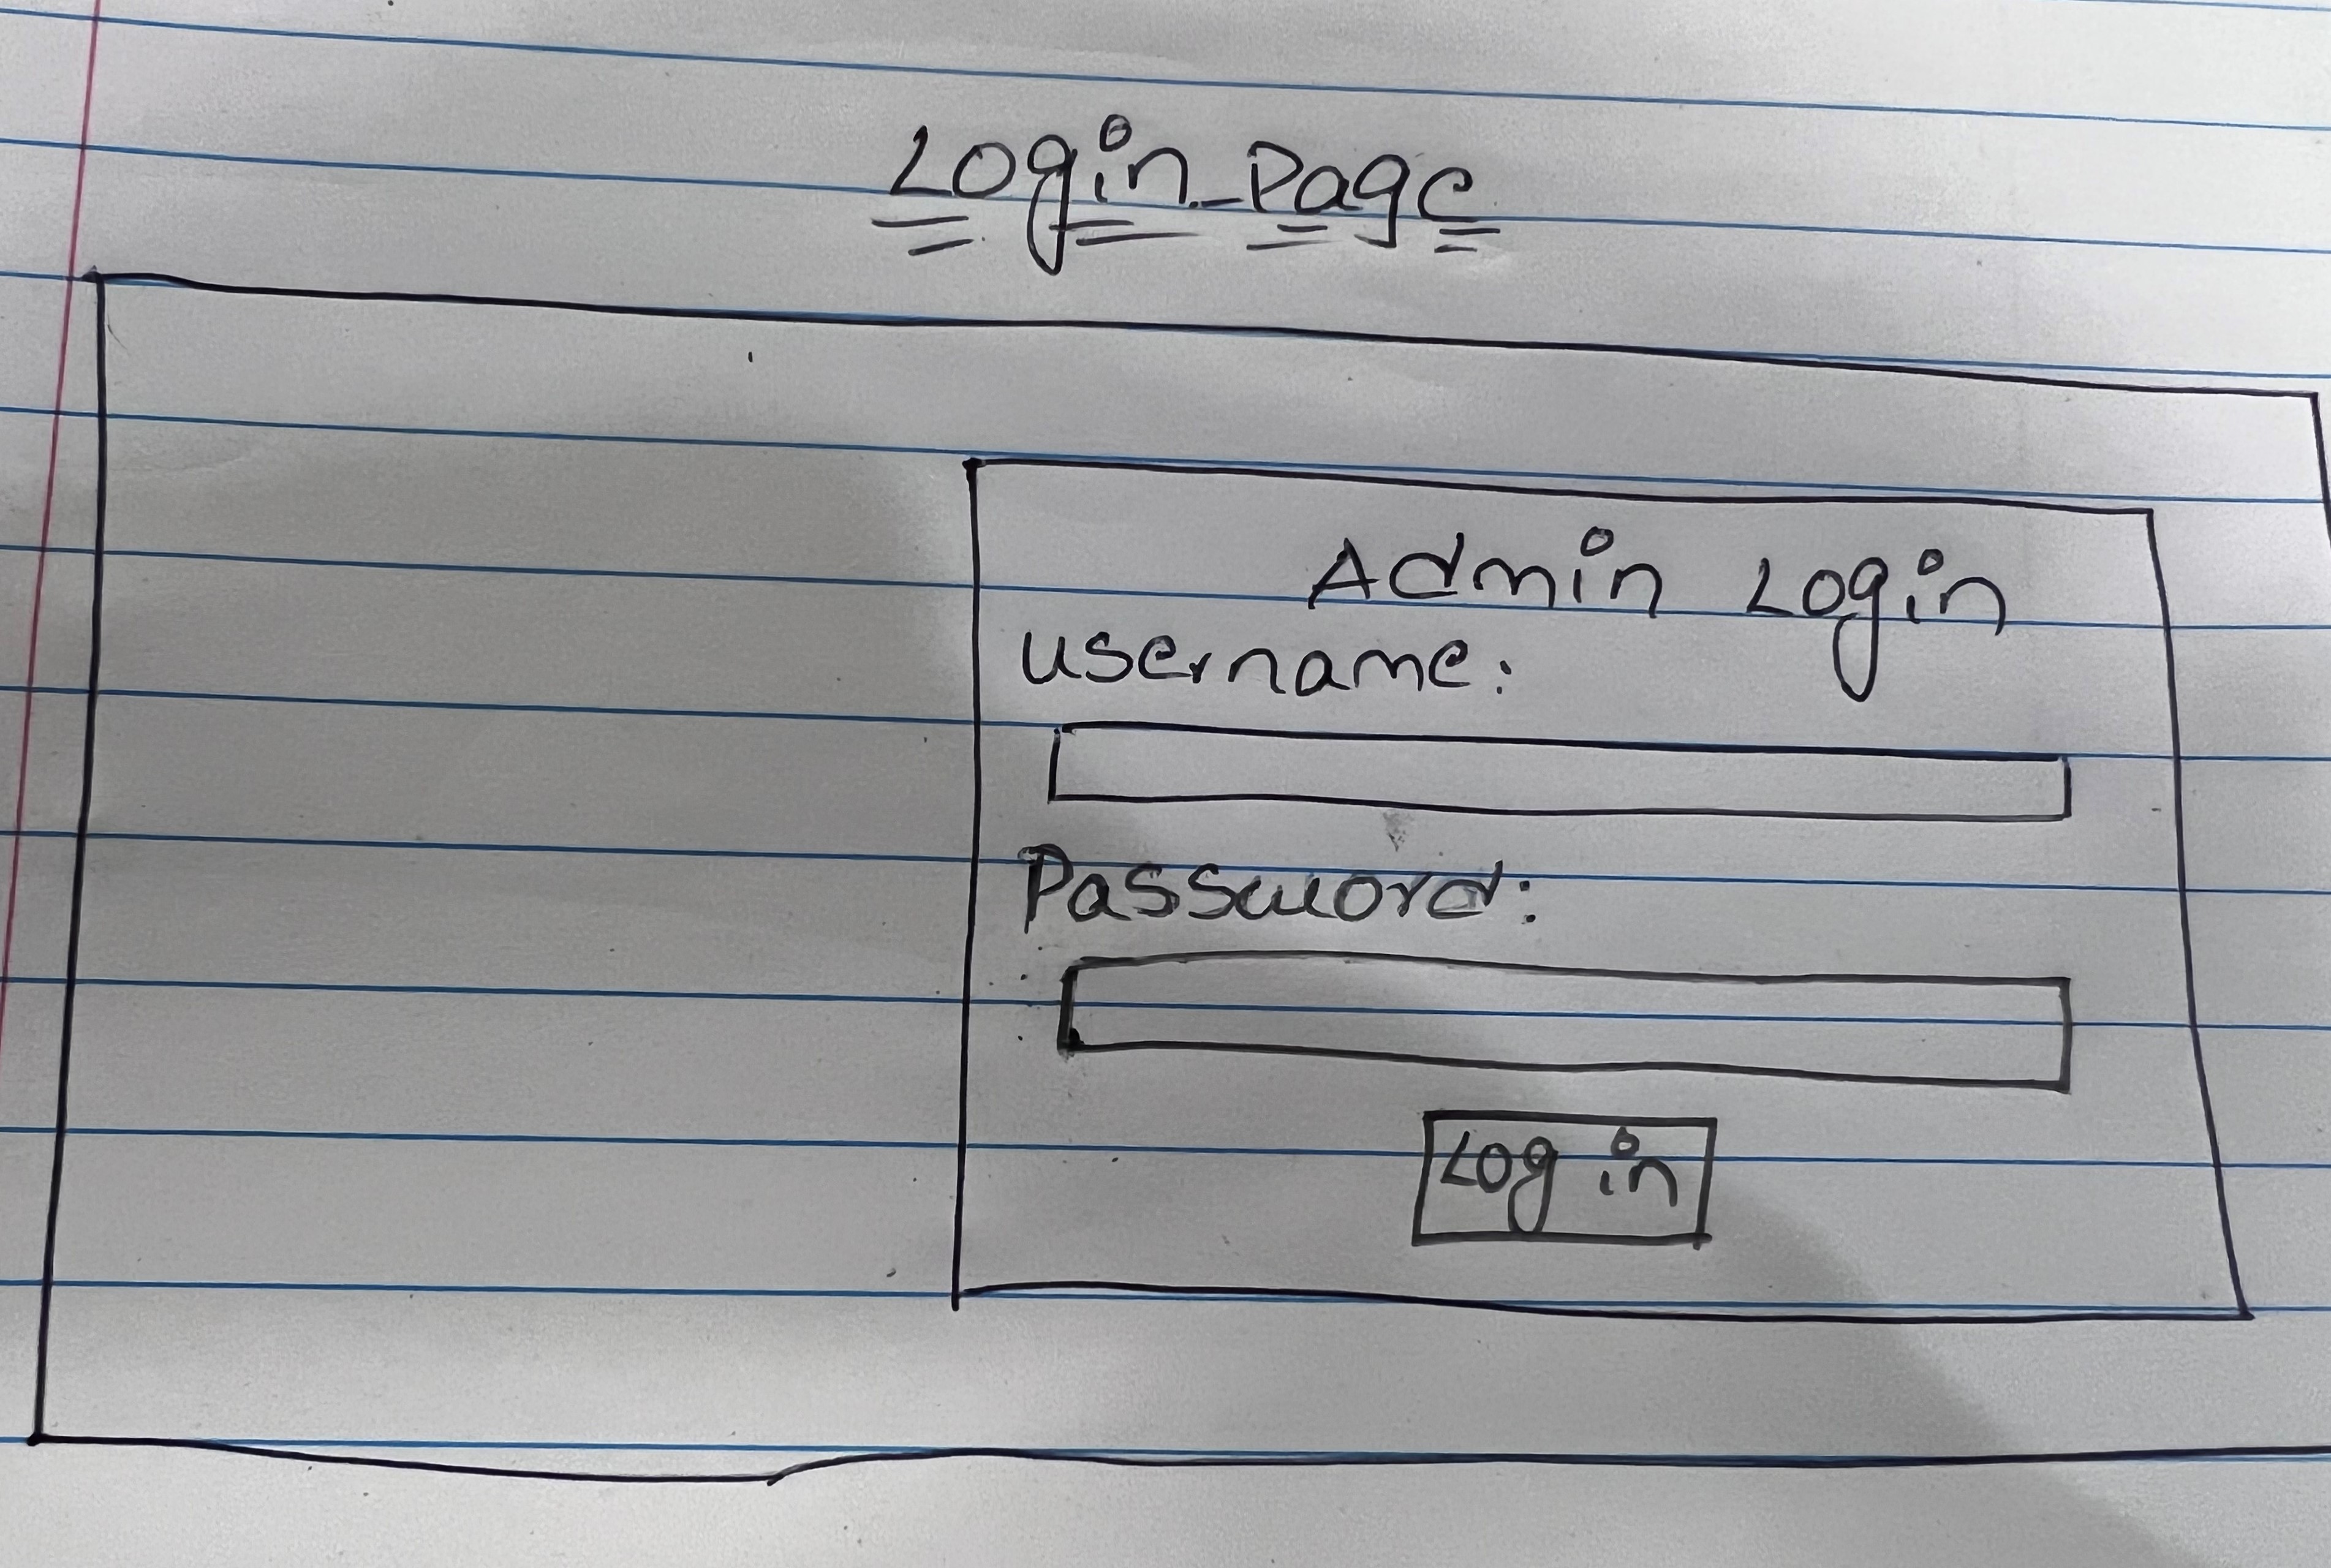 Login Page
Admin Login
username:
Password:
Log in